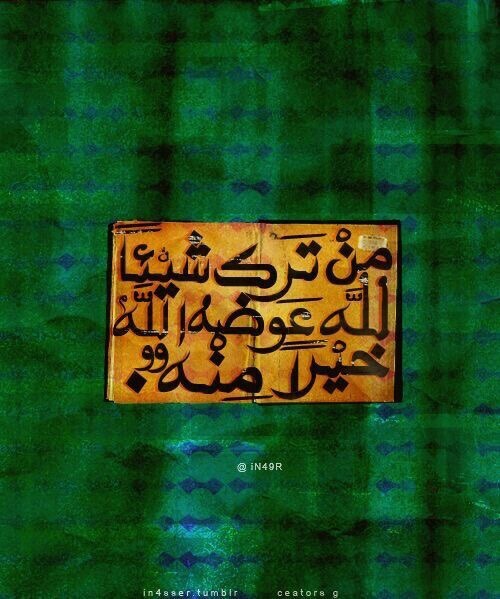 مِنْ تَرَك شيْئاً
للَّه عَوضهُ اللَّهُ
خيْراً مِنْه
@ iN49R
in4sser.tumblr ceators g